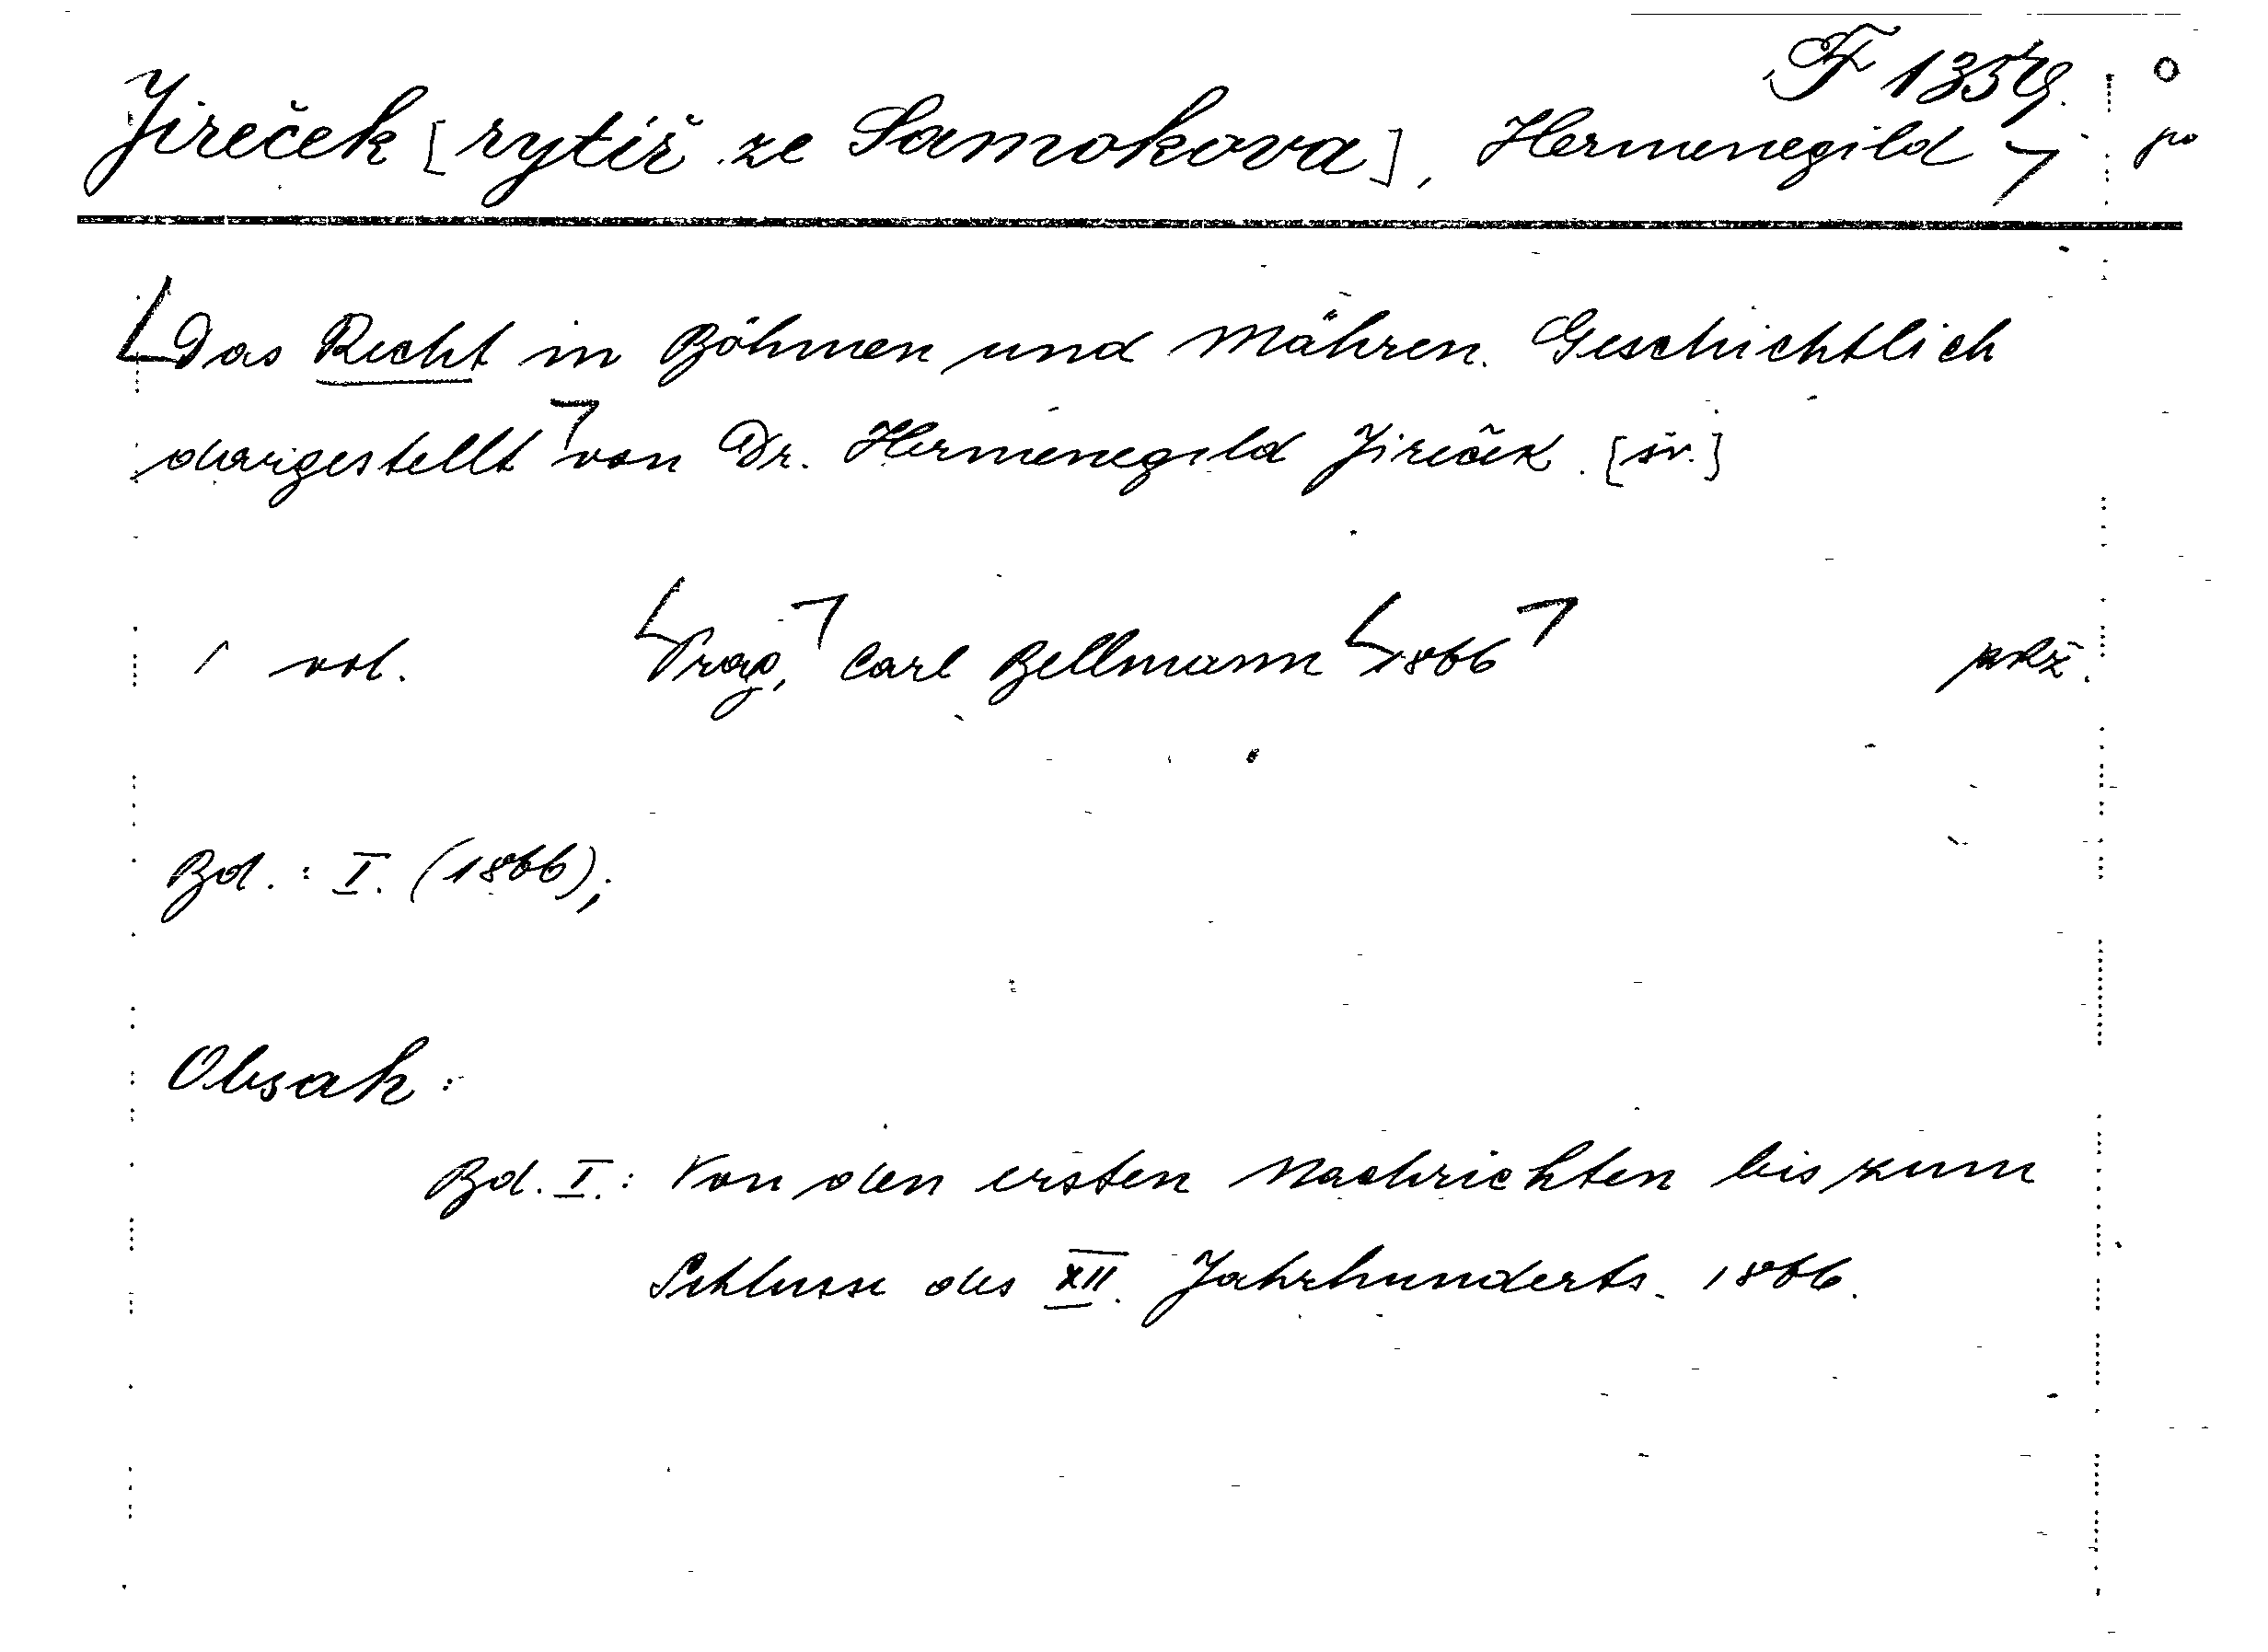 F 1359.
Jireček [rytíř ze Samokova], Hermenegild
Das Recht in Böhmen und Mähren. Geschichtlich
dargestellt von Dr. Hermenegild Jireček. [sv.]
1 vol. Prag, Carl Bellmann 1866
Bd.: I. (1866);
Obsah:
Bd. I.: Von den ersten Nachrichten bis zum
Schlusse des XII. Jahrhunderts. 1866.